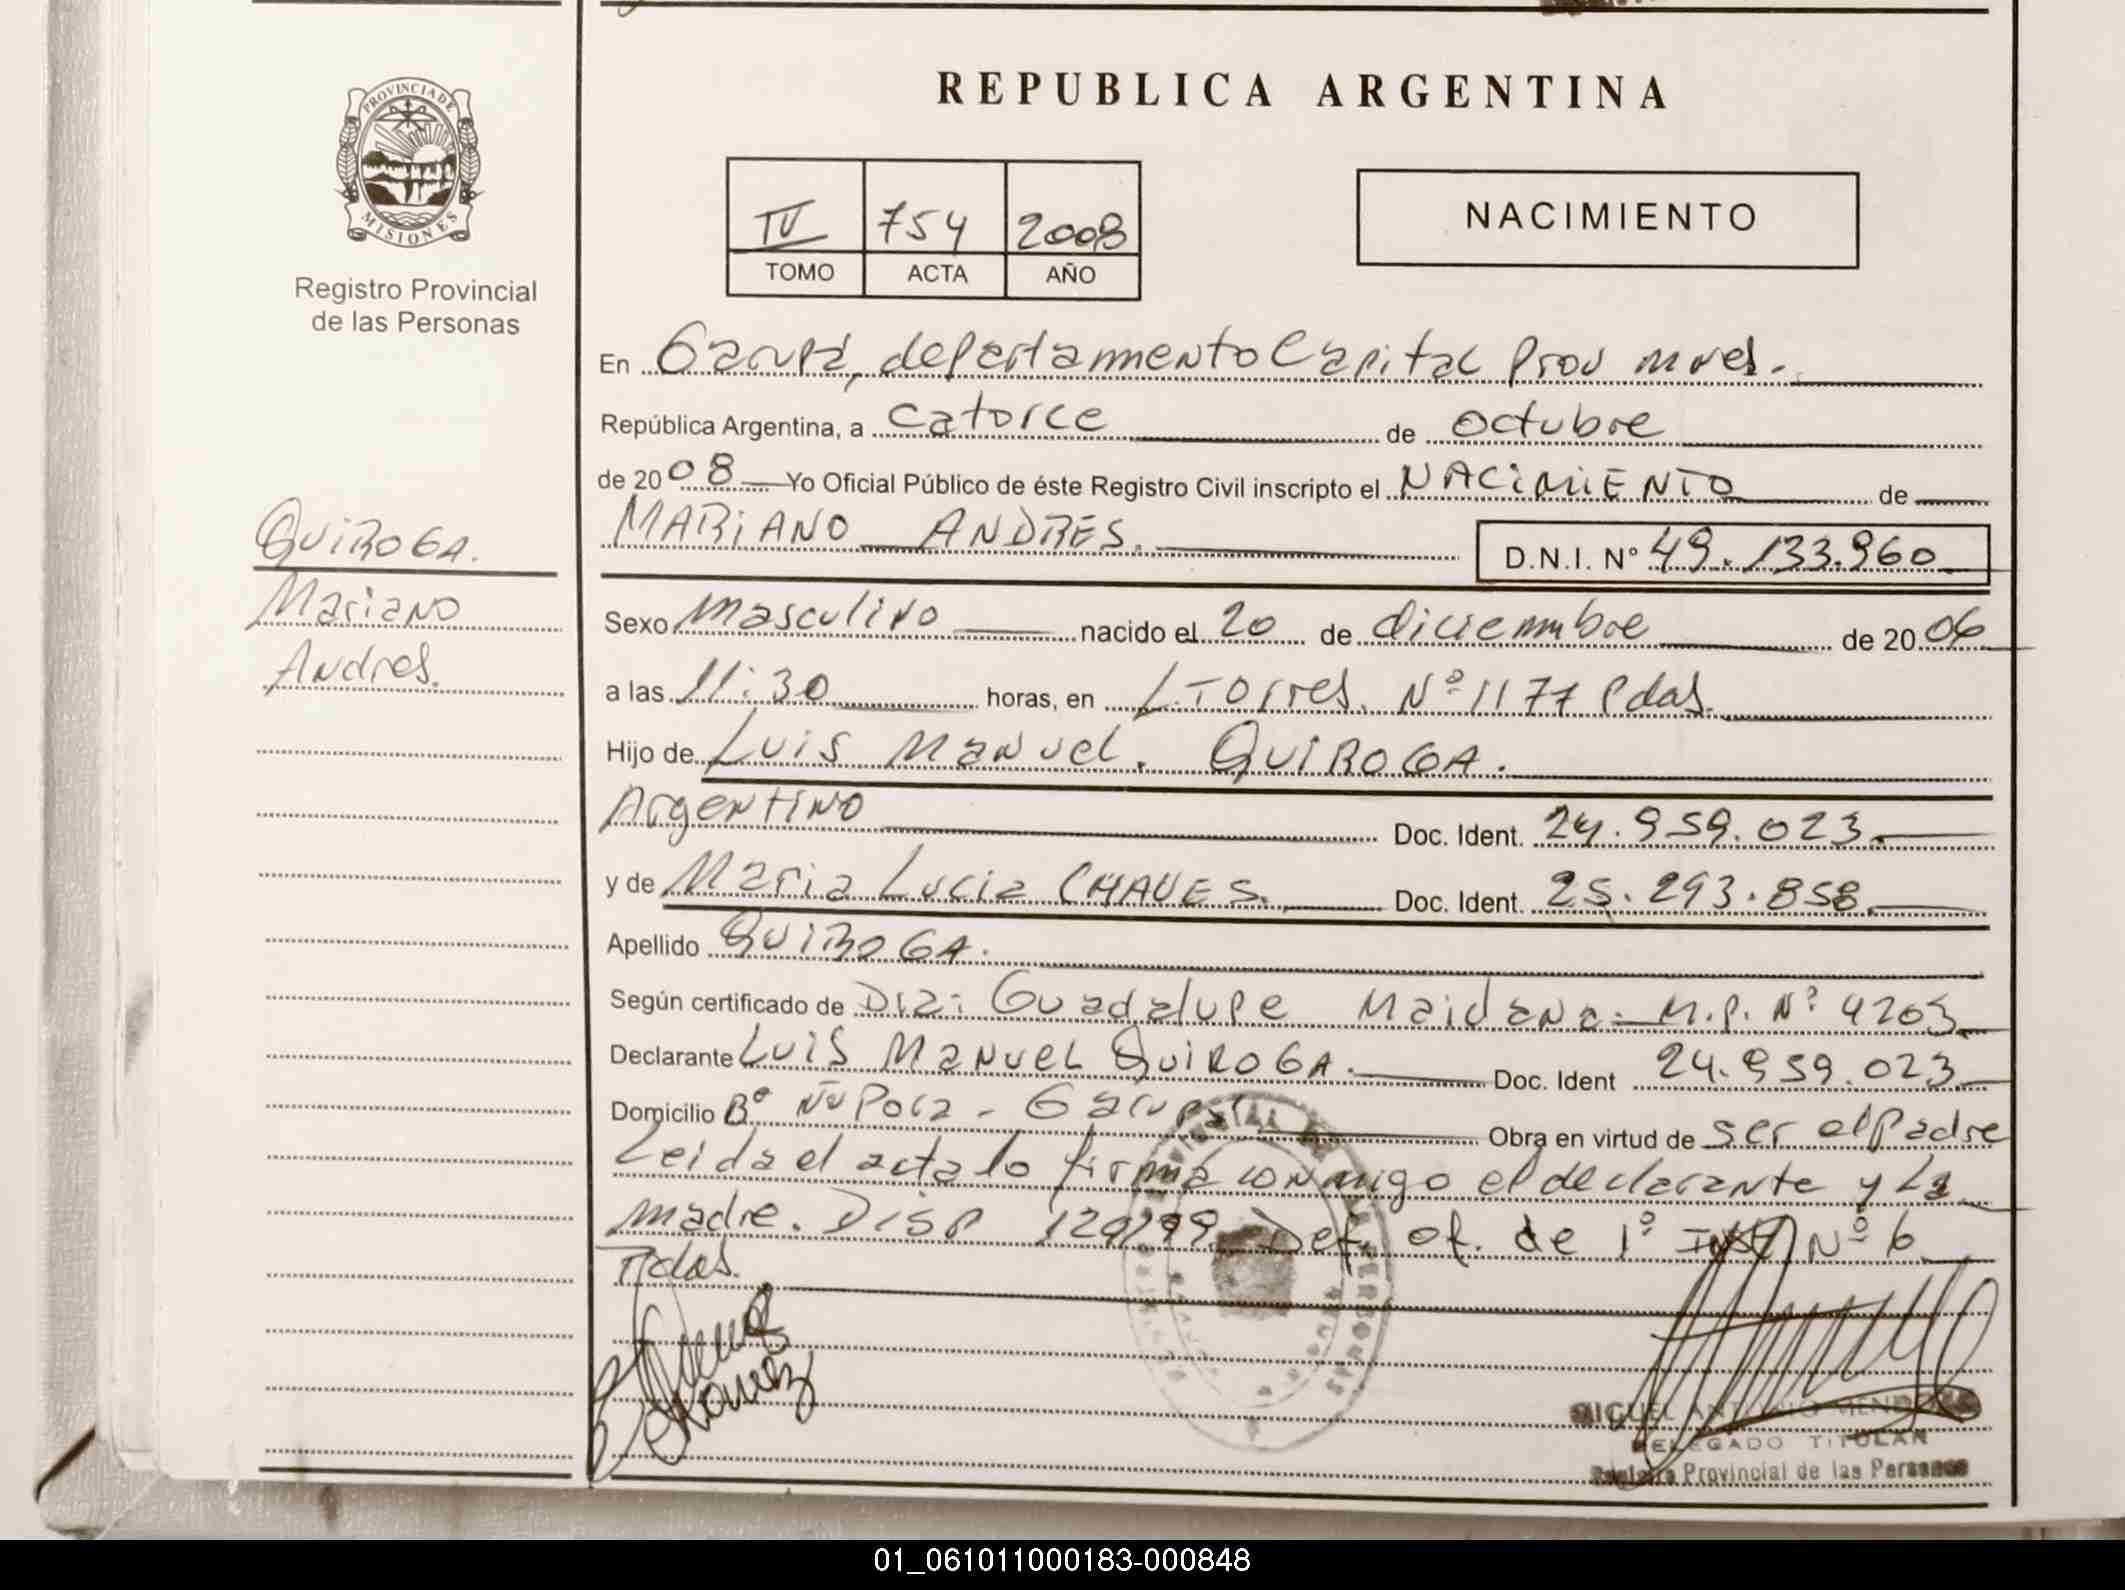 REPUBLICA ARGENTINA
PROVINCIA DE MISIONES
Registro Provincial
de las Personas
IV 754 2008
TOMO ACTA AÑO
NACIMIENTO
En Garupá, departamento Capital Prov mnes.
República Argentina, a catorce de octubre
de 2008 Yo Oficial Público de éste Registro Civil inscripto el NACIMIENTO de
MARIANO ANDRES. D.N.I. Nº 49.133.960
QUIROGA.
Mariano
Andres.
Sexo Masculino nacido el 20 de diciembre de 2006
a las 11:30 horas, en L. Torres. Nº 1177 Pdas.
Hijo de Luis Manuel. QUIROGA.
Argentino Doc. Ident. 24.959.023.
y de Maria Lucia CHAVES. Doc. Ident. 25.293.858.
Apellido QUIROGA.
Según certificado de Dra: Guadalupe Maidana. M.P. Nº 4203
Declarante LUIS MANUEL QUIROGA. Doc. Ident 24.959.023
Domicilio Bº Ñu Pora - Garupá Obra en virtud de ser el Padre
Leida el acta lo firma conmigo el declarante y La
madre. Disp 120/99 Def. of. de 1º INST Nº 6
Pdas.
MIGUEL ANTONIO MENDOZA
DELEGADO TITULAR
Registro Provincial de las Personas
01_061011000183-000848